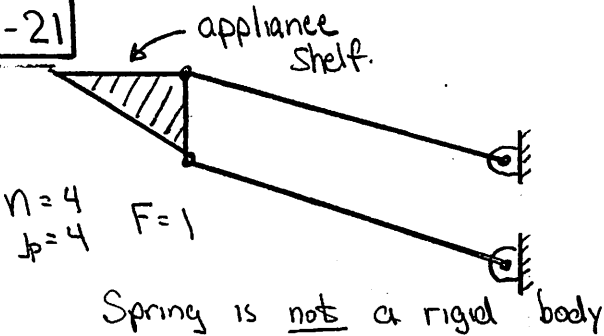 -21
appliance
shelf.
n = 4
jp = 4
F = 1
Spring is not a rigid body